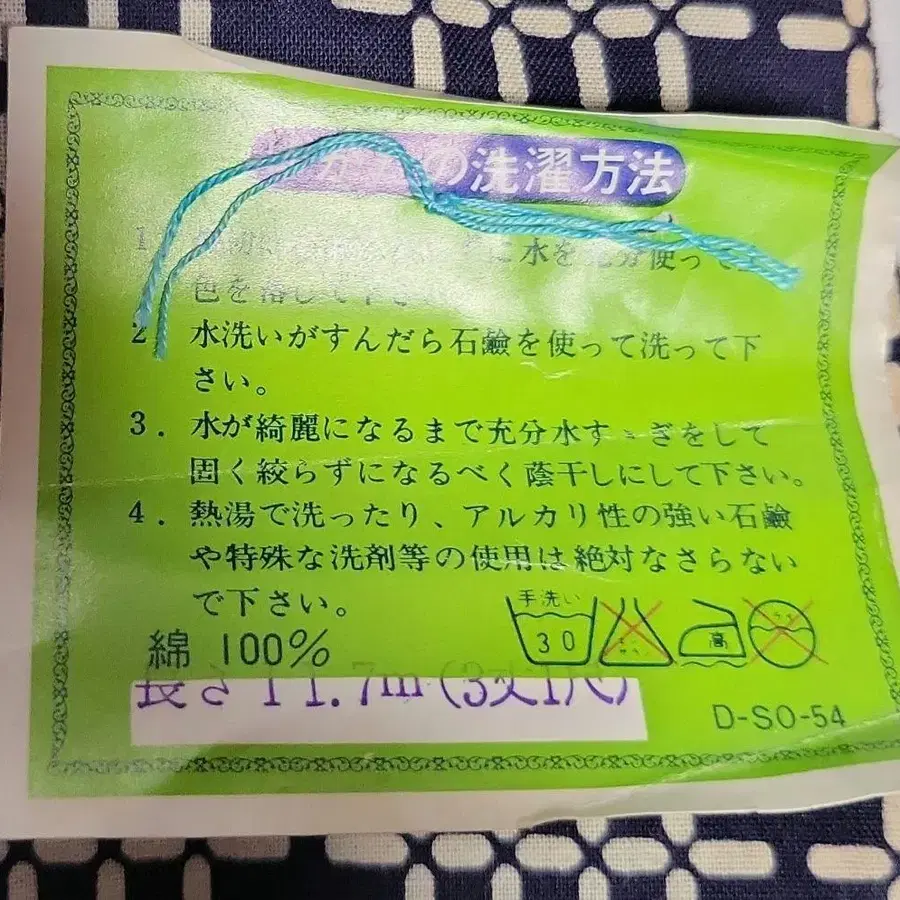 の洗濯方法
1 に水を充分使って
色を落して下さ
2 水洗いがすんだら石鹼を使って洗って下
さい。
3. 水が綺麗になるまで充分水すゝぎをして
固く絞らずになるべく蔭干しにして下さい。
4. 熱湯で洗ったり、アルカリ性の強い石鹼
や特殊な洗剤等の使用は絶対なさらない
で下さい。
手洗い
30
高
綿 100%
長さ11.7m(3丈1尺)
D-SO-54